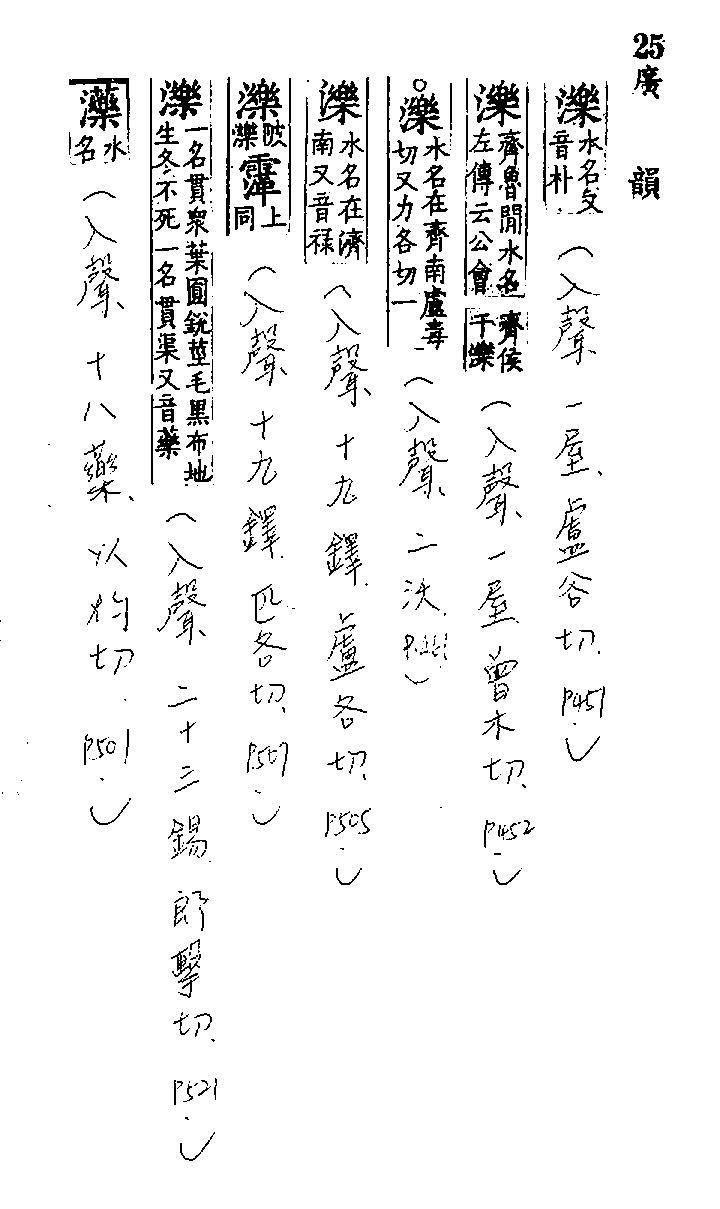 25
廣韻
濼 水名又音朴 (入聲、一屋、盧谷切、P451.)
濼 齊魯間水名左傳云公會齊侯于濼 (入聲、一屋、曾木切、P452.)
。濼 水名在齊南盧毒切又力各切一 (入聲、二沃、)
濼 水名在濟南又音祿 (入聲、十九鐸、盧各切、P505.)
濼 陂濼 上同 (入聲、十九鐸、匹各切、P507.)
濼 一名貫衆葉圓銳莖毛黑布地生冬不死一名貫渠又音藥 (入聲、二十三錫、郎擊切、P521.)
藥 水名 (入聲、十八藥、以灼切、P501.)